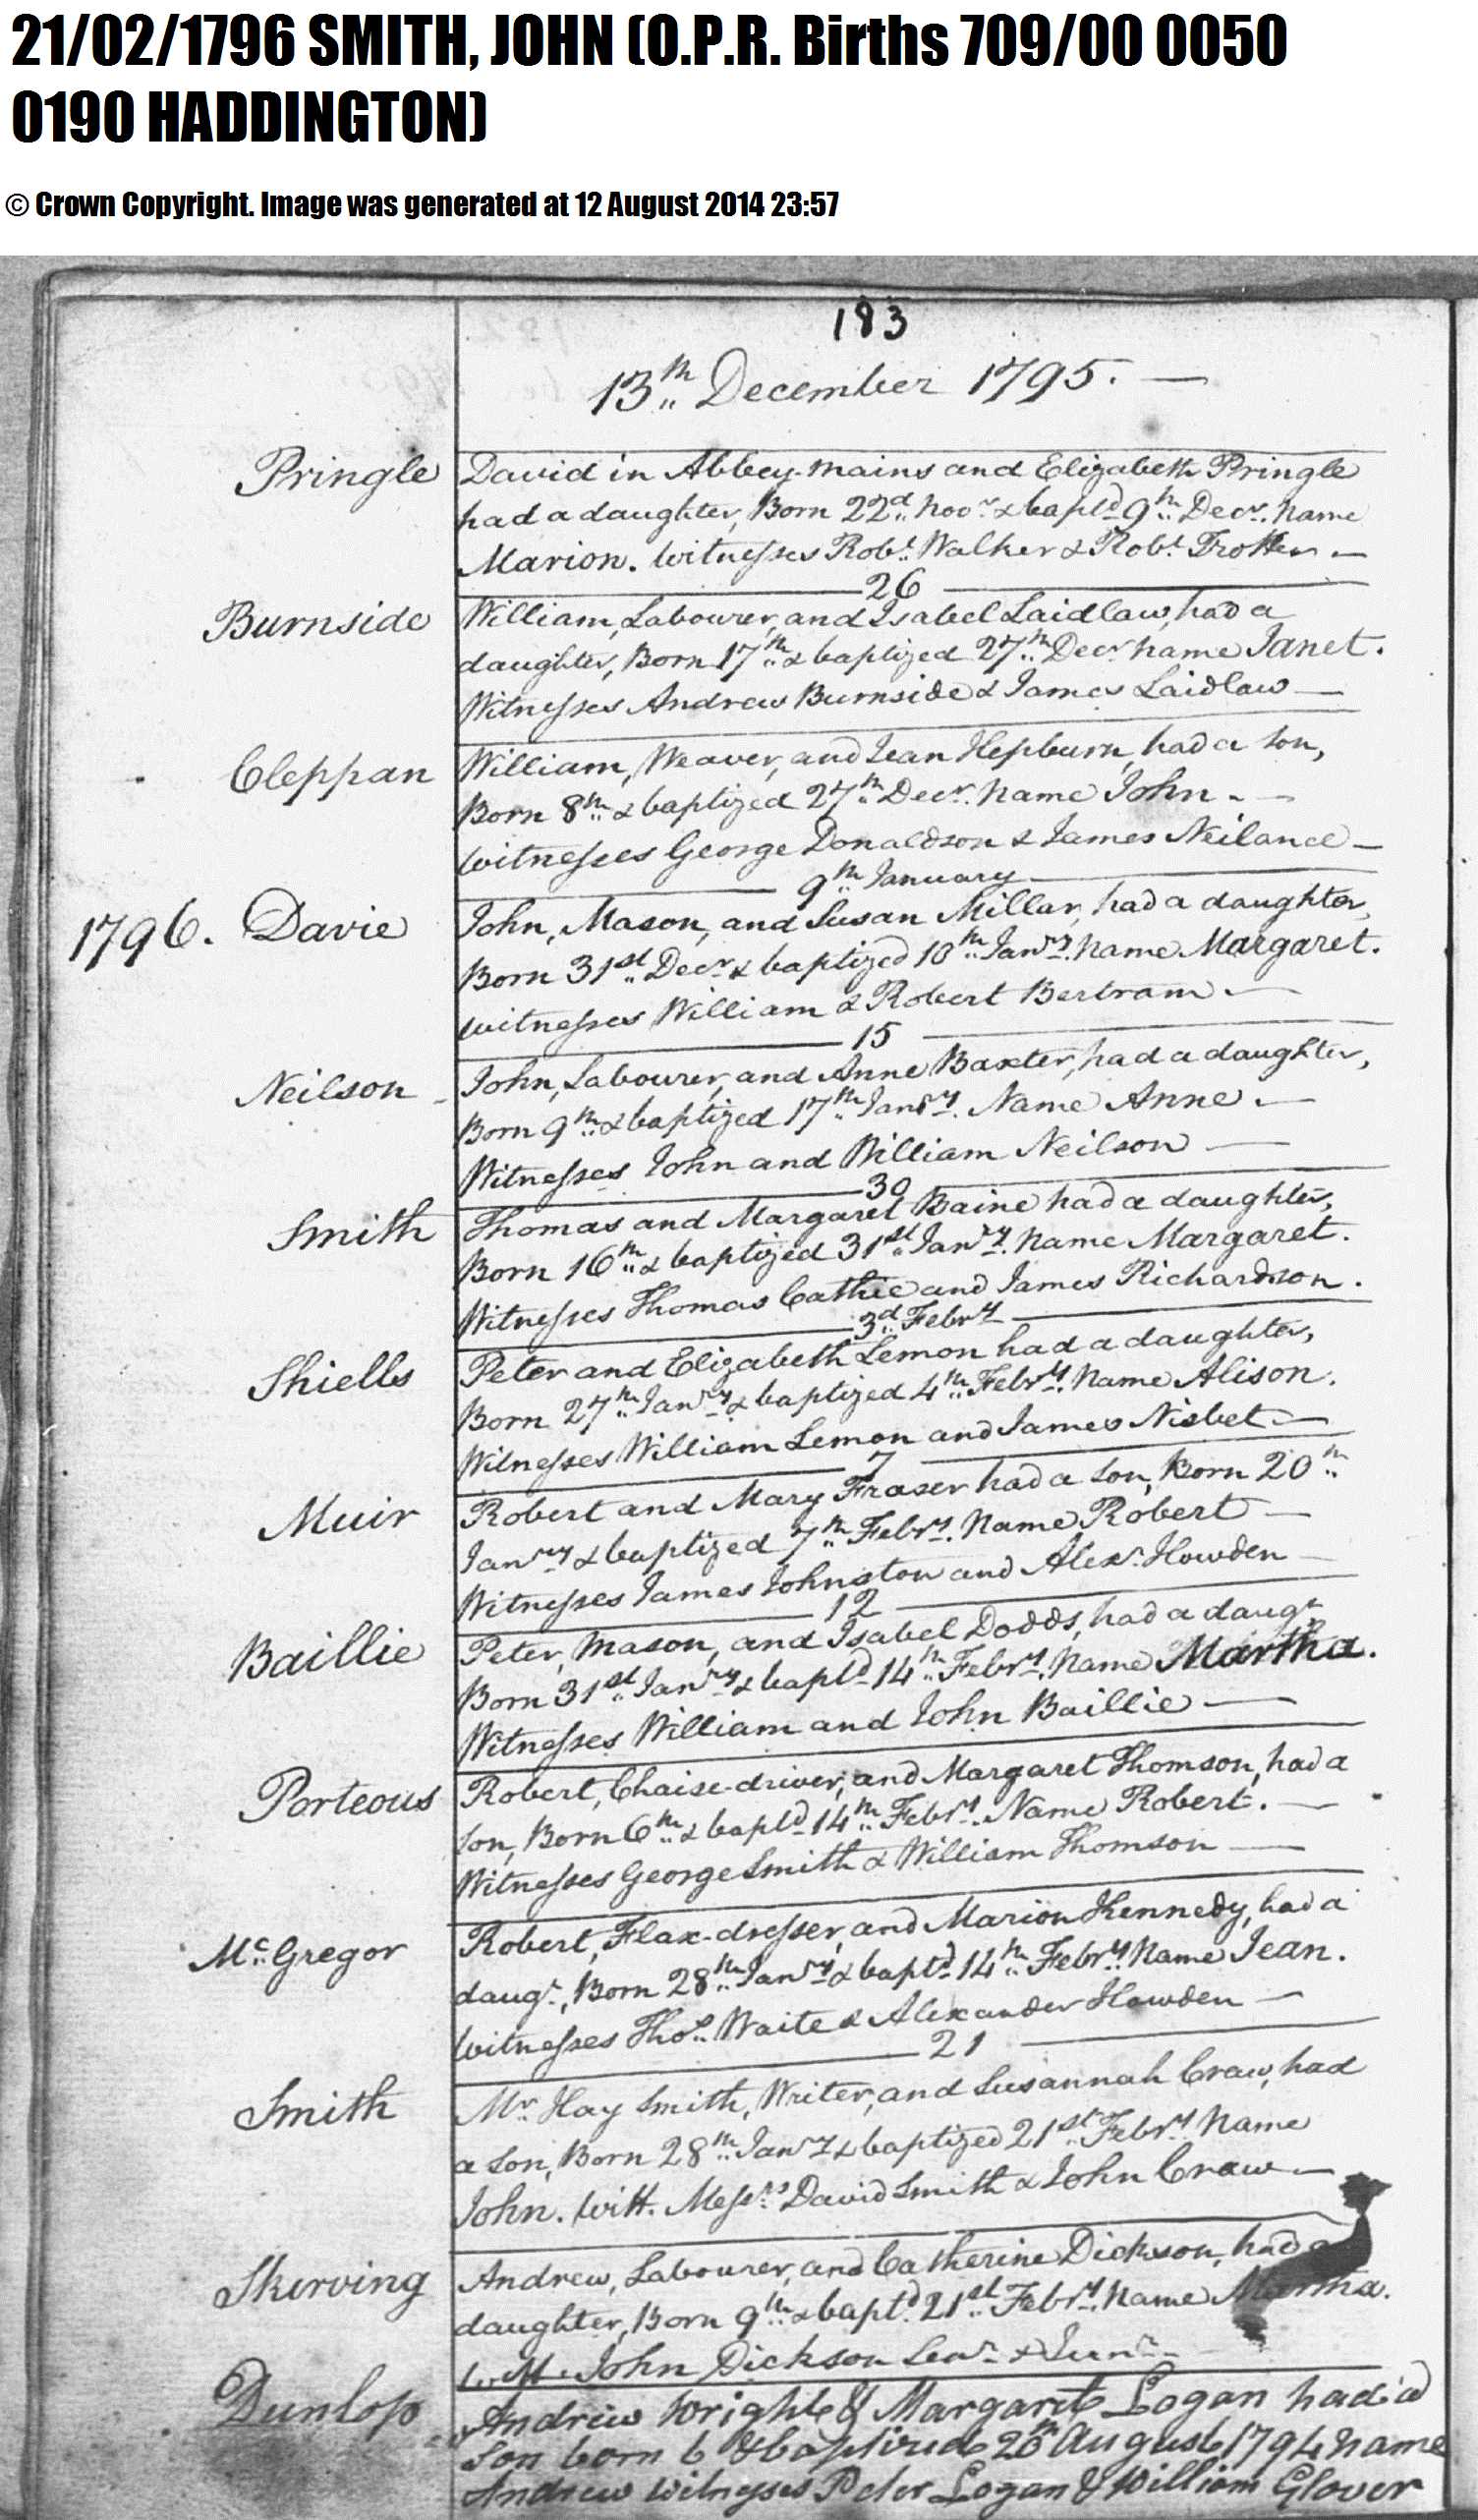 21/02/1796 SMITH, JOHN (O.P.R. Births 709/00 0050
0190 HADDINGTON)
© Crown Copyright. Image was generated at 12 August 2014 23:57
183
13th December 1795. —
Pringle David in Abbey-mains and Elizabeth Pringle
had a daughter, Born 22d Novr & baptd 9th Decr. Name
Marion. Witnesses Robt Walker & Robt Trotter —
26
Burnside William, Labourer, and Isabel Laidlaw, had a
daughter, Born 17th & baptized 27th Decr name Janet.
Witnesses Andrew Burnside & James Laidlaw —
Cleppan William, Weaver, and Jean Hepburn, had a Son,
Born 8th & baptized 27th Decr. Name John. —
Witnesses George Donaldson & James Neilance —
9th January
1796. Davie John, Mason, and Susan Millar, had a daughter,
Born 31st Decr & baptized 10th Janry. Name Margaret.
Witnesses William & Robert Bertram —
15
Neilson John, Labourer, and Anne Baxter, had a daughter,
Born 9th & baptized 17th Janry. Name Anne —
Witnesses John and William Neilson —
30
Smith Thomas and Margaret Baine had a daughter,
Born 16th & baptized 31st Janry. Name Margaret.
Witnesses Thomas Cathie and James Richardson.
3d Febry
Shiells Peter and Elizabeth Lemon had a daughter,
Born 27th Janry & baptized 4th Febry. Name Alison.
Witnesses William Lemon and James Nisbet —
7
Muir Robert and Mary Fraser had a Son, Born 20th
Janry & baptized 7th Febry. Name Robert —
Witnesses James Johnston and Alexr. Howden —
12
Baillie Peter, Mason, and Isabel Dodds, had a daugr
Born 31st Janry & baptd 14th Febry. Name Martha.
Witnesses William and John Baillie —
Porteous Robert, Chaise-driver, and Margaret Thomson, had a
Son, Born 6th & baptd 14th Febry. Name Robert. —
Witnesses George Smith & William Thomson —
Mc.Gregor Robert, Flax-dresser, and Marion Kennedy, had a
daugr, Born 28th Janry & baptd 14th Febry. Name Jean.
Witnesses Thos. Waite & Alexander Howden —
21
Smith Mr. Hay Smith, Writer, and Susannah Craw, had
a Son, Born 28th Janry & baptized 21st Febry. Name
John. Witt. Messrs David Smith & John Craw —
Skirving Andrew, Labourer, and Catherine Dickson, had a
daughter, Born 9th & baptd. 21st Febry. Name Martha.
Witt. John Dickson Senr & Junr —
Dunlop Andrew Wright & Margaret Logan had a
Son born 6 & baptized 20th August 1794 Name
Andrew Witnesses Peter Logan & William Glover